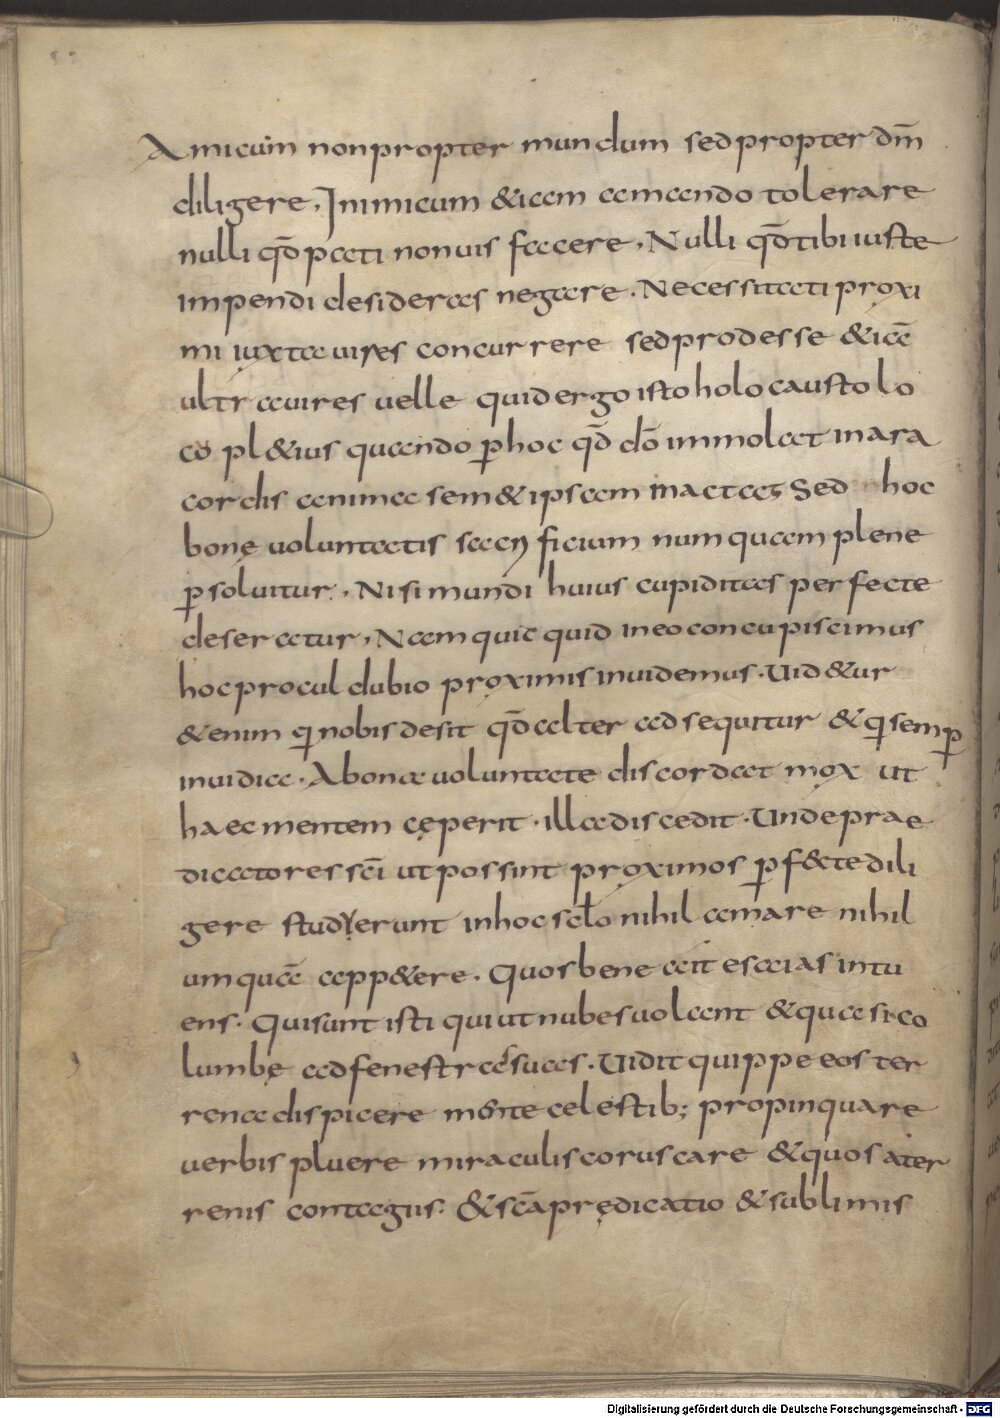 Amicum non propter mundum sed propter dm̄
diligere, Inimicum &iam amando tolerare
nulli qd̄ pati non uis facere, Nulli qd̄ tibi iuste
impendi desideras negare. Necessitati proxi
mi iuxta uires concurrere sed prodesse &iā
ultra uires uelle quid ergo isto holocausto lo
co pl&ius quando p̄ hoc qd̄ dō immolat in ara
cordis anima sem&ipsam mactat Sed hoc
bonę uoluntatis sacrificium numquam plene
p̄soluitur. Nisi mundi huius cupiditas perfecte
deseratur, Nam quic quid in eo concupiscimus
hoc procul dubio proximis inuidemus. Uid&ur
&enim qi nobis desit qd̄ alter adsequitur & qi semp̄
inuidia. A bonæ uoluntate discordat mox ut
haec mentem cęperit. illa discedit. Unde prae
dicatores scī ut possint proximos p̄f&te dili
gere studuerunt in hoc sclo nihil amare nihil
umquā app&ere. Quos bene ait esaias intu
ens. Qui sunt isti qui ut nubes uolant & quasi co
lumbę ad fenestras suas. Uidit quippe eos ter
rena dispicere mente celestib; propinquare
uerbis pluere miraculis coruscare & quos a ter
renis contagus. & scā prędicatio & sublimis
Digitalisierung gefördert durch die Deutsche Forschungsgemeinschaft - DFG